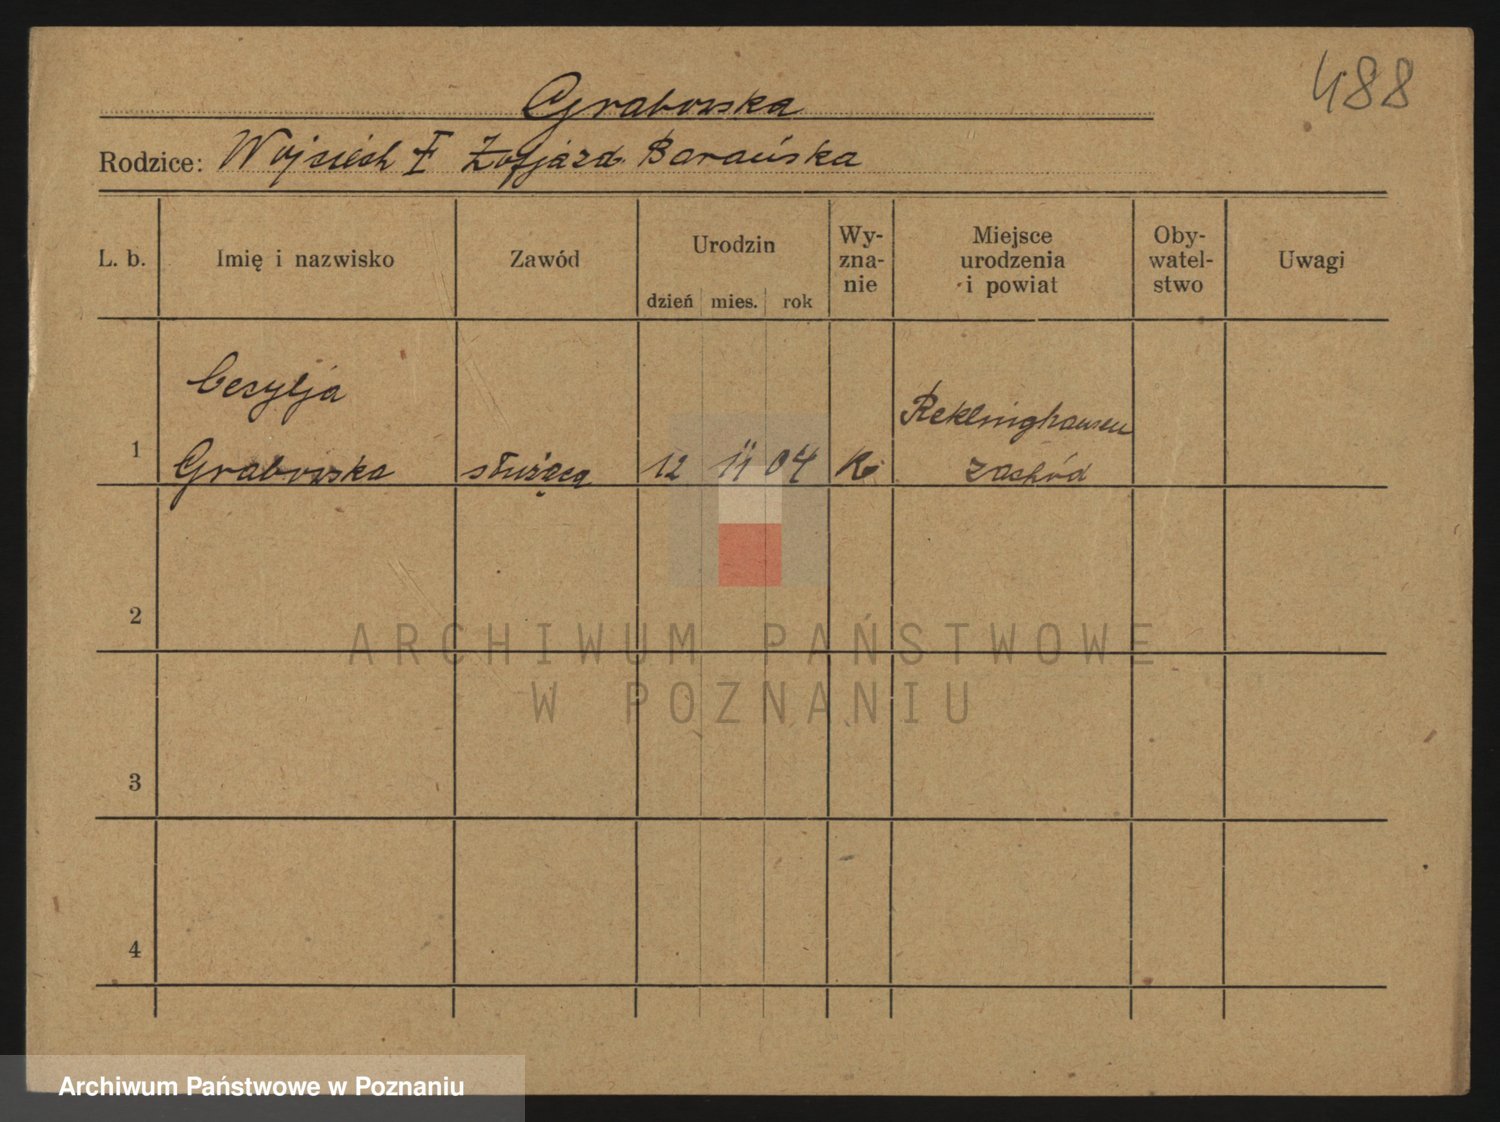 488
Grabowska
Rodzice: Wojciech I Zofja zd. Barańska
L. b. Imię i nazwisko Zawód Urodzin dzień mies. rok Wy-zna-nie Miejsce urodzenia i powiat Oby-watel-stwo Uwagi
Cecylja
Reklinghausen
1 Grabowska służąca 12 11 04 Rk zachód
2
3
4
ARCHIWUM PAŃSTWOWE
W POZNANIU
Archiwum Państwowe w Poznaniu